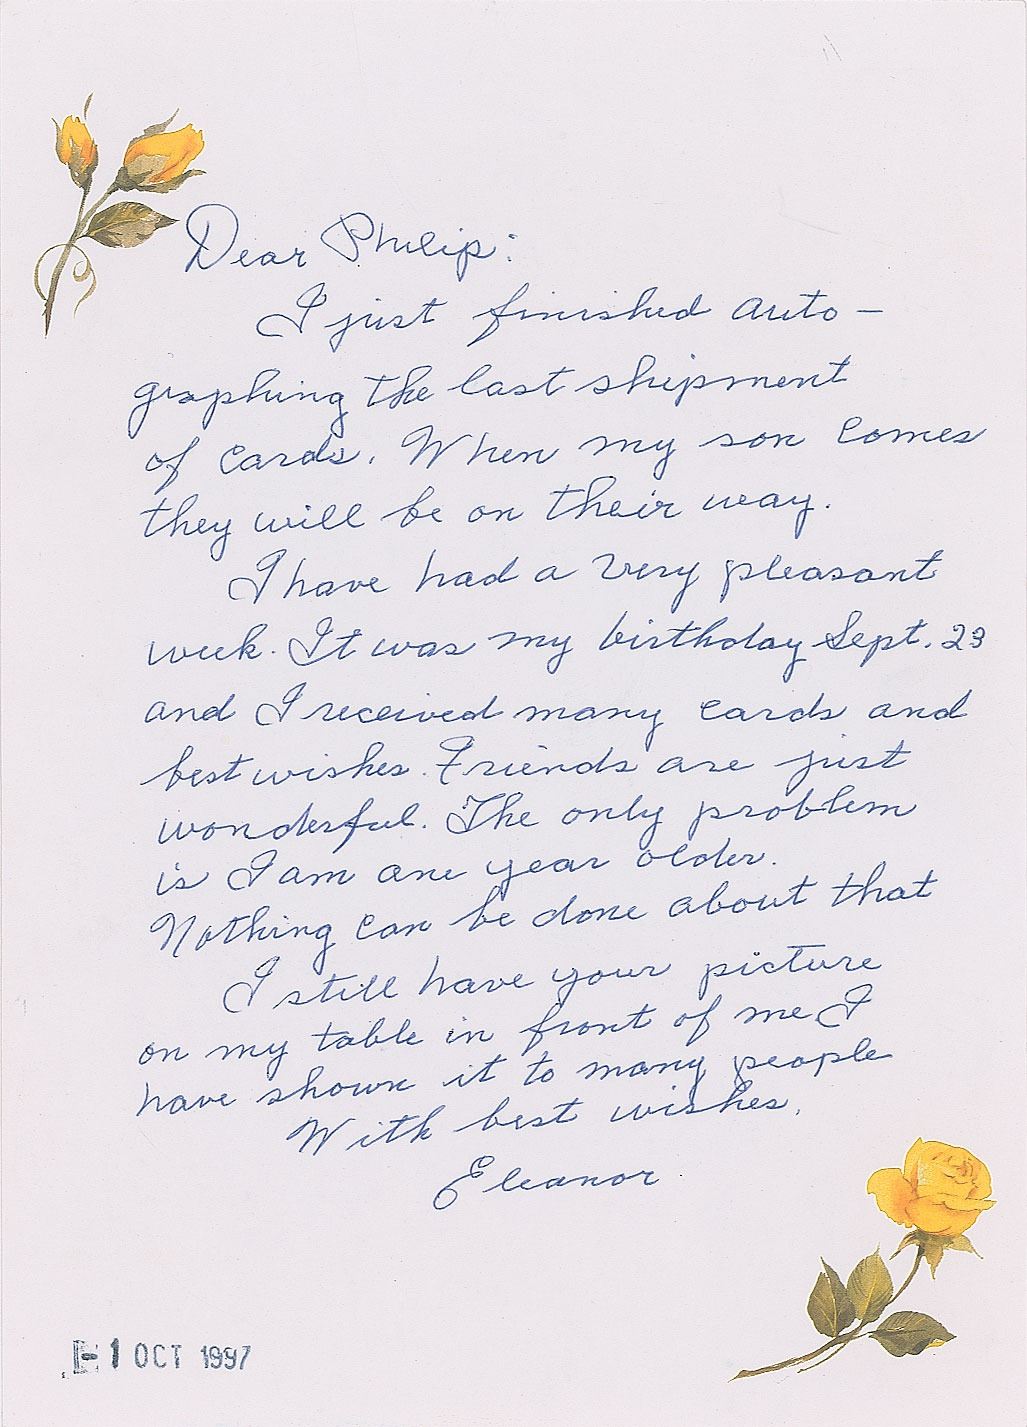 Dear Philip:
I just finished auto-
graphing the last shipment
of cards. When my son comes
they will be on their way.
I have had a very pleasant
week. It was my birthday Sept. 23
and I received many cards and
best wishes. Friends are just
wonderful. The only problem
is I am one year older.
Nothing can be done about that
I still have your picture
on my table in front of me. I
have shown it to many people
With best wishes.
Eleanor
-1 OCT 1997